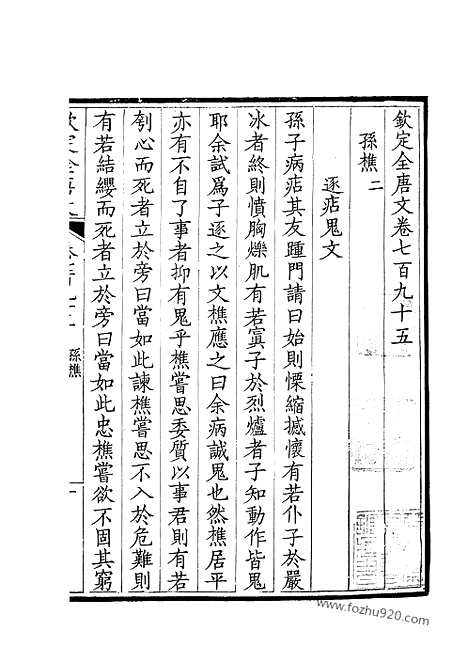 欽定全唐文卷七百九十五
孫樵二
逐痁鬼文
孫子病痁其友踵門請曰始則慄縮撼懷有若仆子於嚴
冰者終則憤胸爍肌有若寘子於烈爐者子知動作皆鬼
耶余試爲子逐之以文樵應之曰余病誠鬼也然樵居平
亦有不自了事者抑有鬼乎樵嘗思委質以事君則有若
刳心而死者立於旁曰當如此諫樵嘗思不入於危難則
有若結纓而死者立於旁曰當如此忠樵嘗欲不固其窮
孫樵
一
www.fozhu920.com